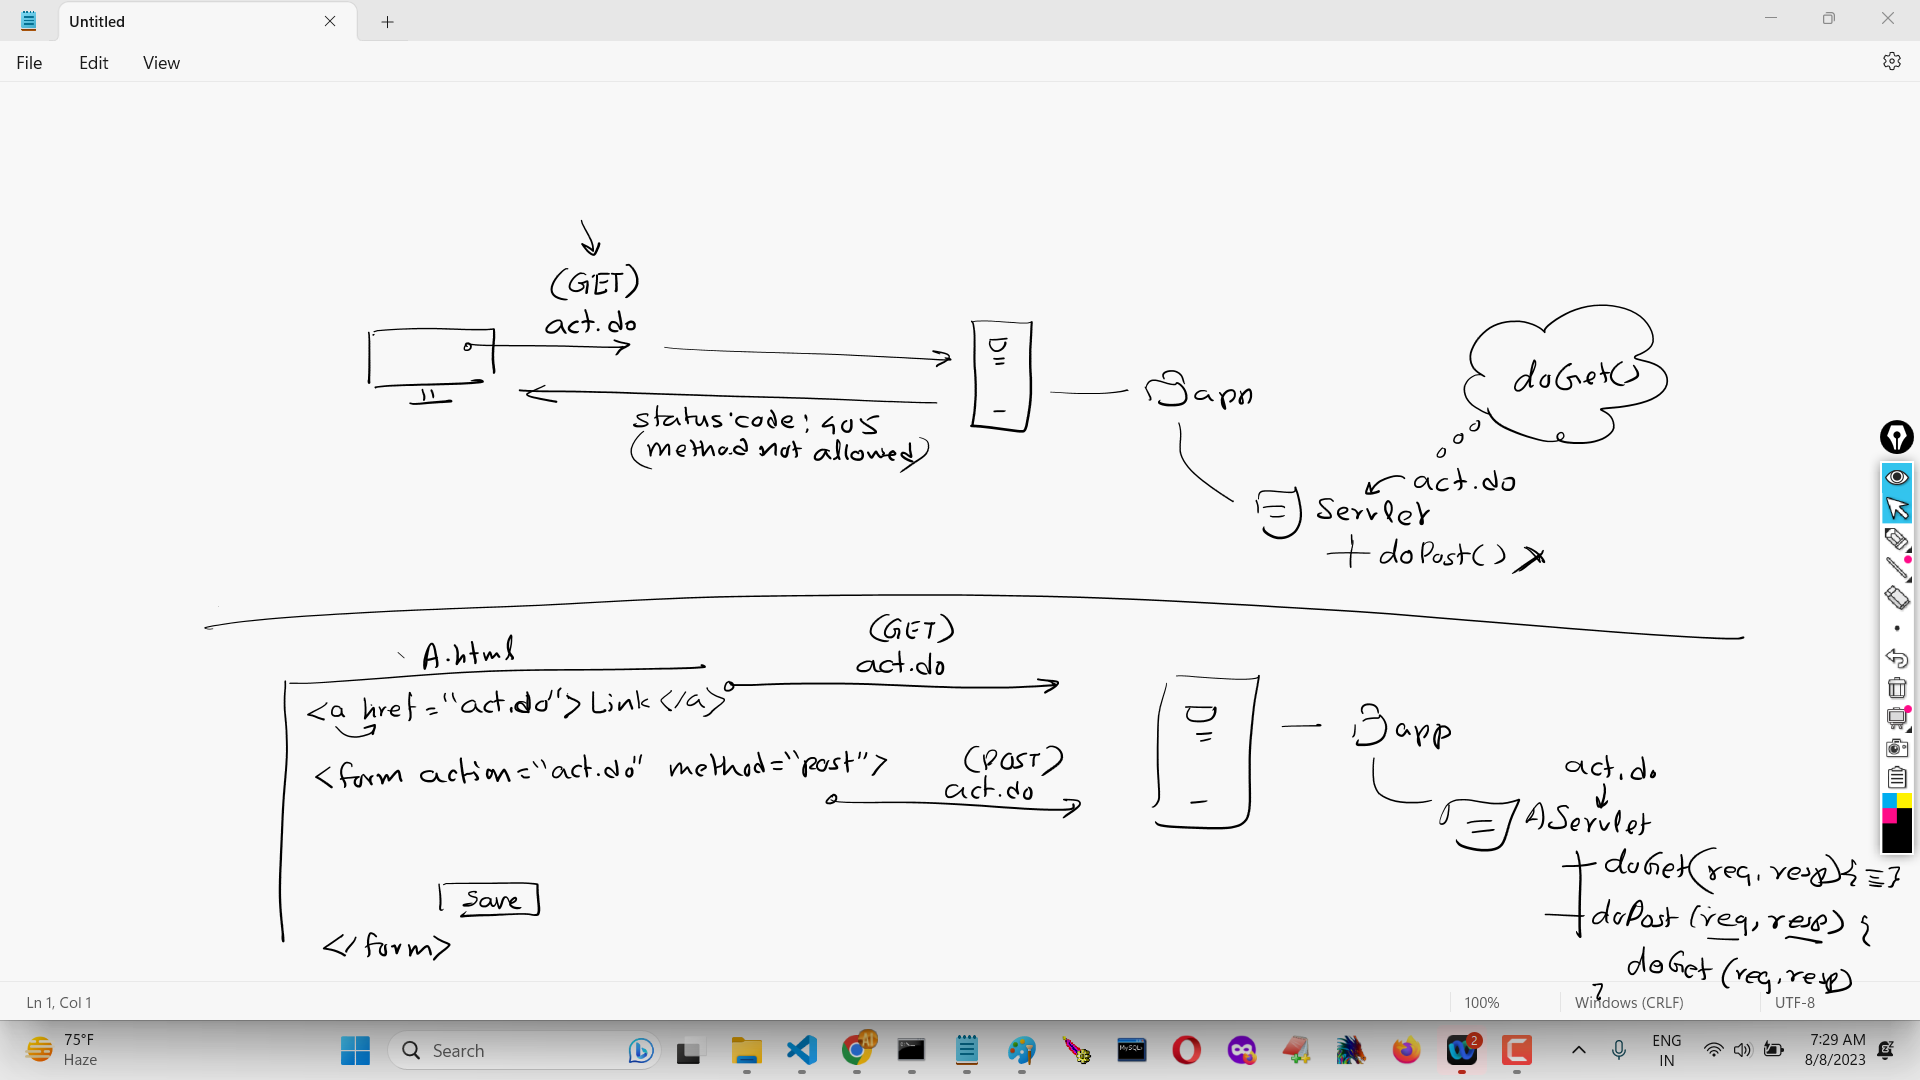 Untitled
File Edit View
(GET)
act.do
status code: 405
(method not allowed)
app
doGet()
act.do
Servlet
+ doPost() x
A.html
<a href="act.do">Link</a>
(GET)
act.do
<form action="act.do" method="post">
(POST)
act.do
Save
</form>
app
act.do
AServlet
doGet(req, resp){ }
doPost(req, resp) {
doGet(req, resp)
}
Ln 1, Col 1
100%
Windows (CRLF)
UTF-8
75°F
Haze
Search
MySQL
2
ENG
IN
7:29 AM
8/8/2023